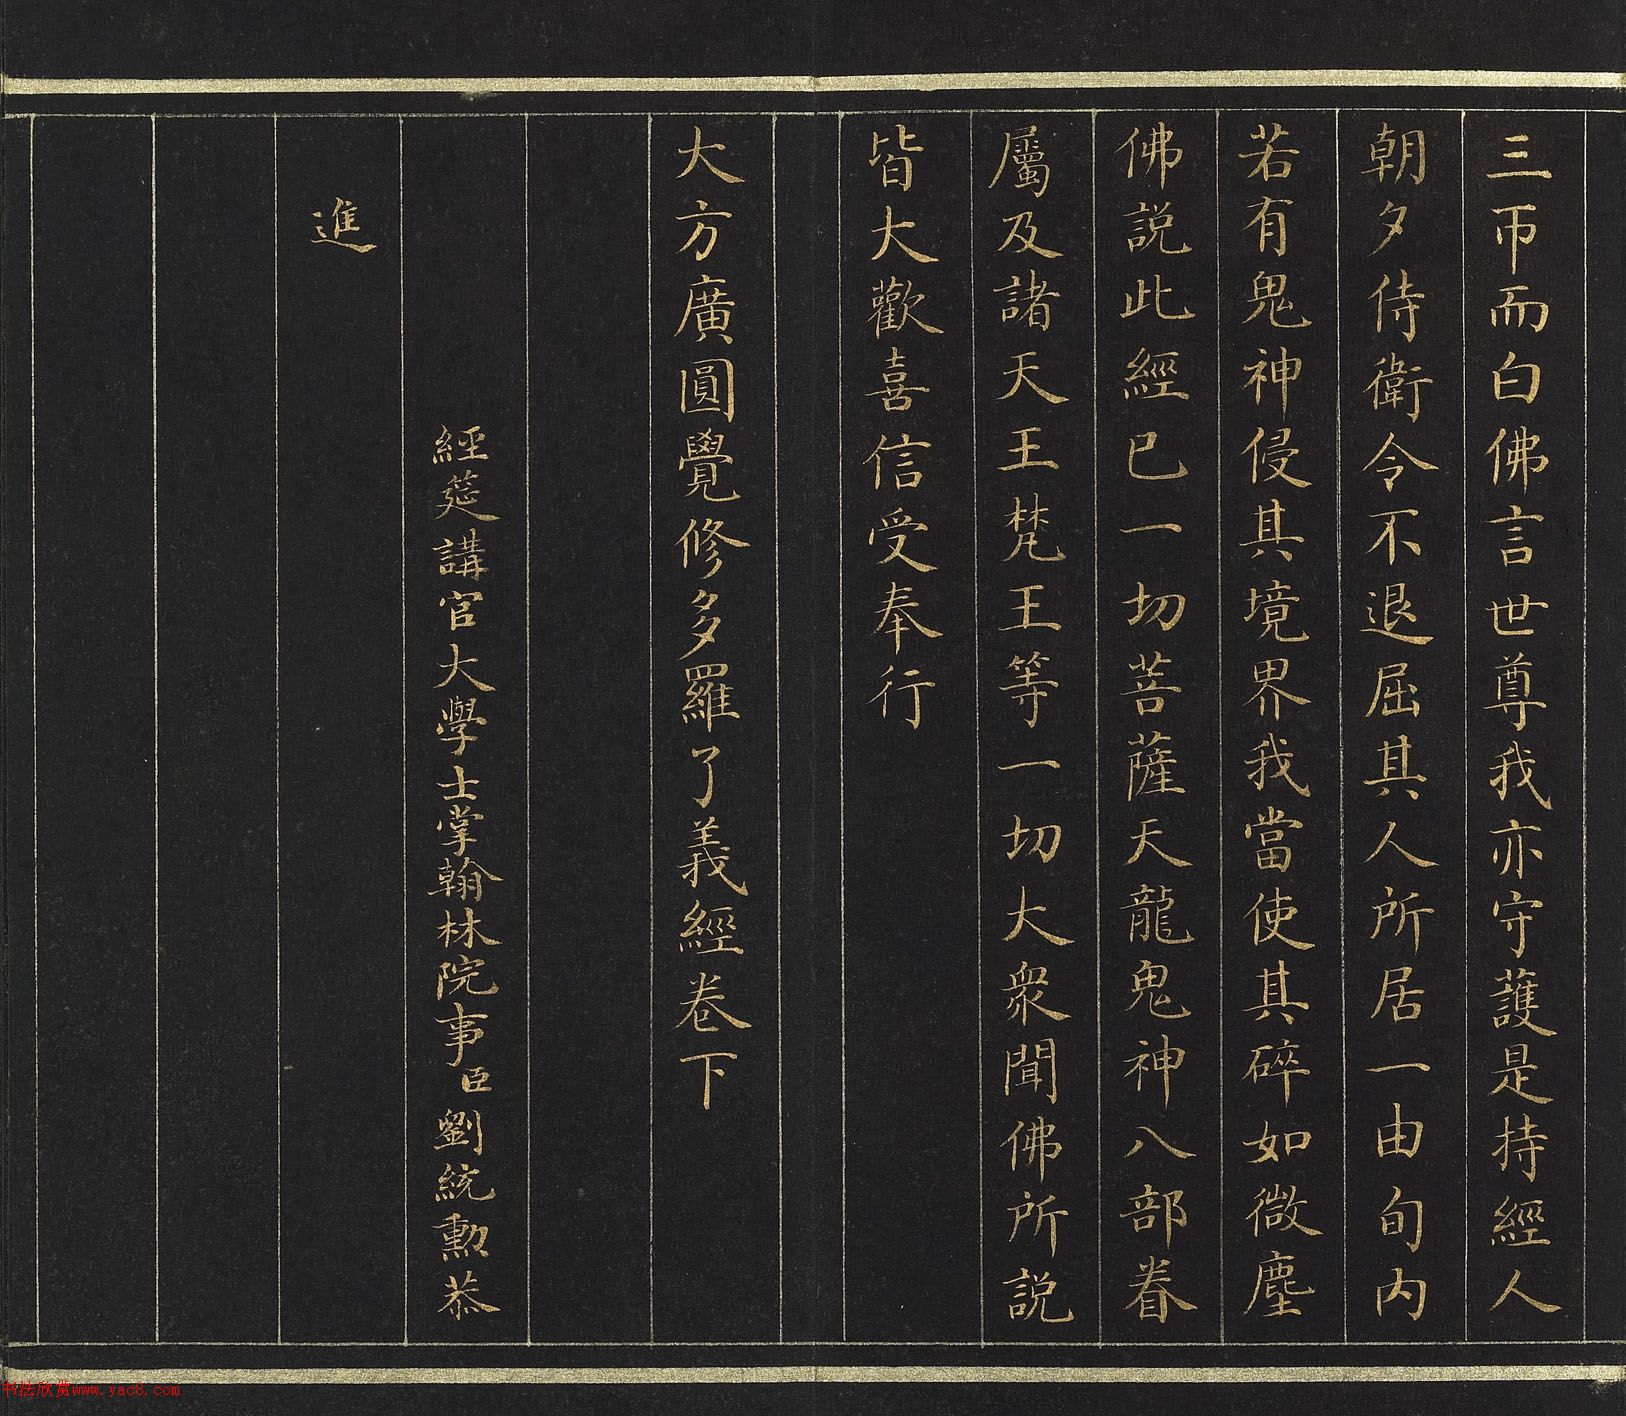 三帀而白佛言世尊我亦守護是持經人
朝夕侍衛令不退屈其人所居一由旬内
若有鬼神侵其境界我當使其碎如微塵
佛説此經已一切菩薩天龍鬼神八部眷
屬及諸天王梵王等一切大衆聞佛所説
皆大歡喜信受奉行
大方廣圓覺修多羅了義經卷下
經筵講官大學士掌翰林院事臣劉統勳恭
進
书法欣赏www.yac8.com